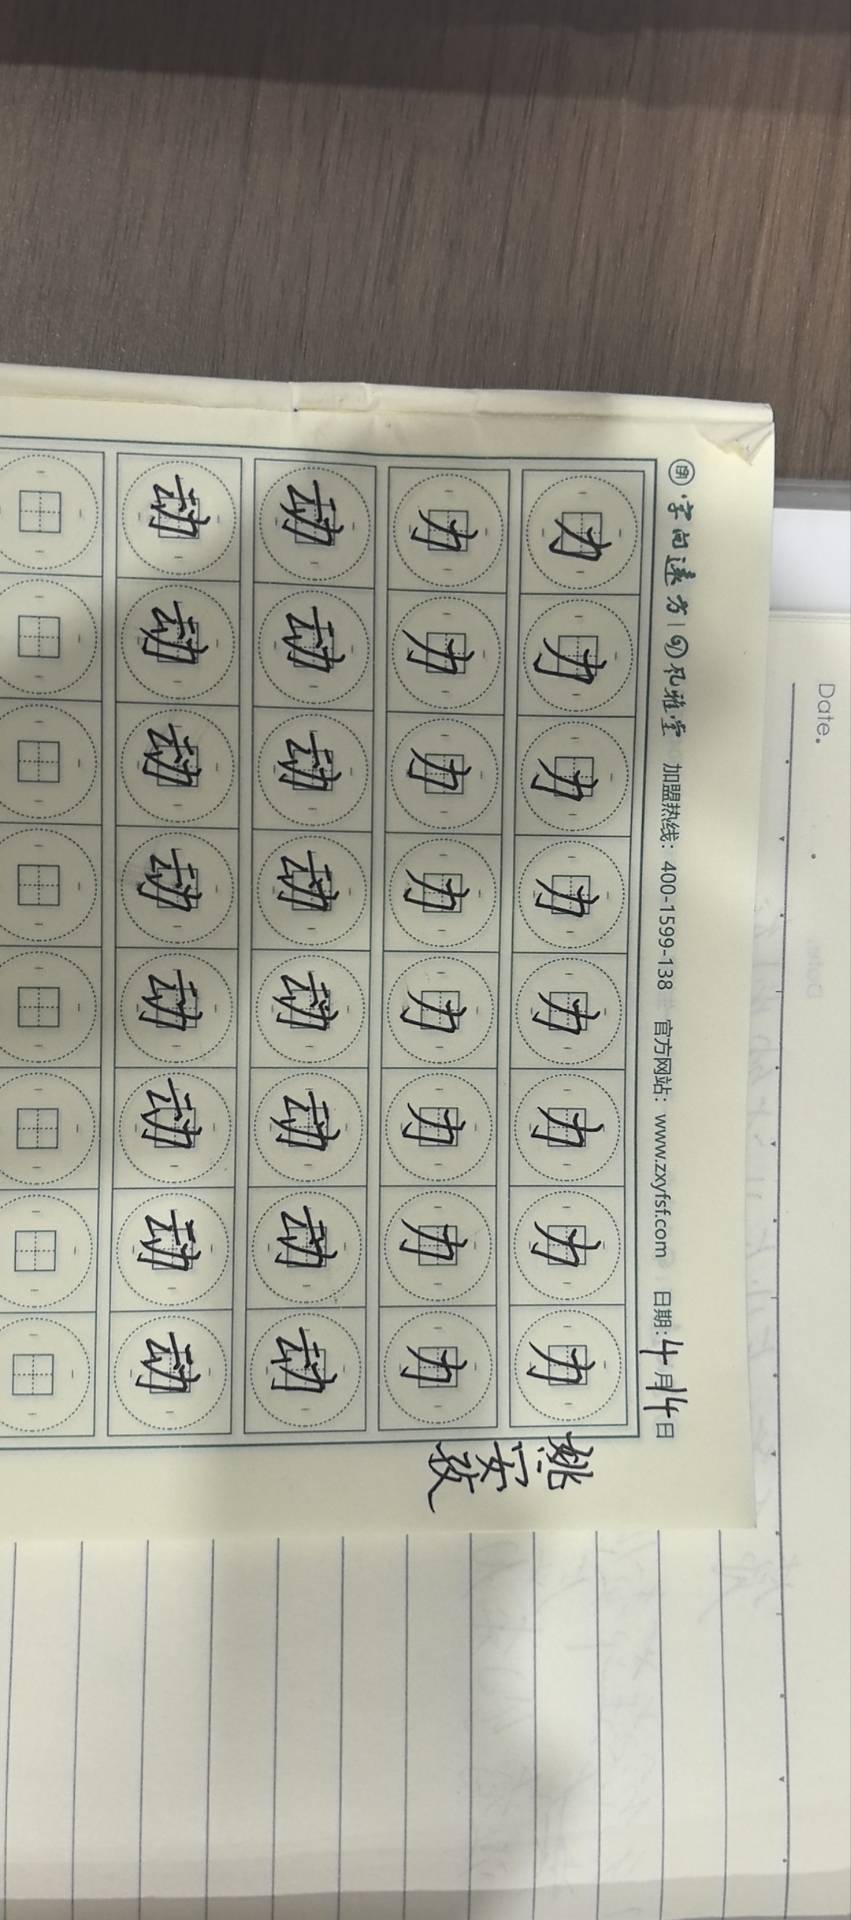 字向远方 孔雅堂 加盟热线：400-1599-138 官方网站：www.zxyfsf.com 日期：4月14日
力 力 力 力 力 力 力 力
力 力 力 力 力 力 力 力
动 动 动 动 动 动 动 动
动 动 动 动 动 动 动 动
姚
安
孜
Date.